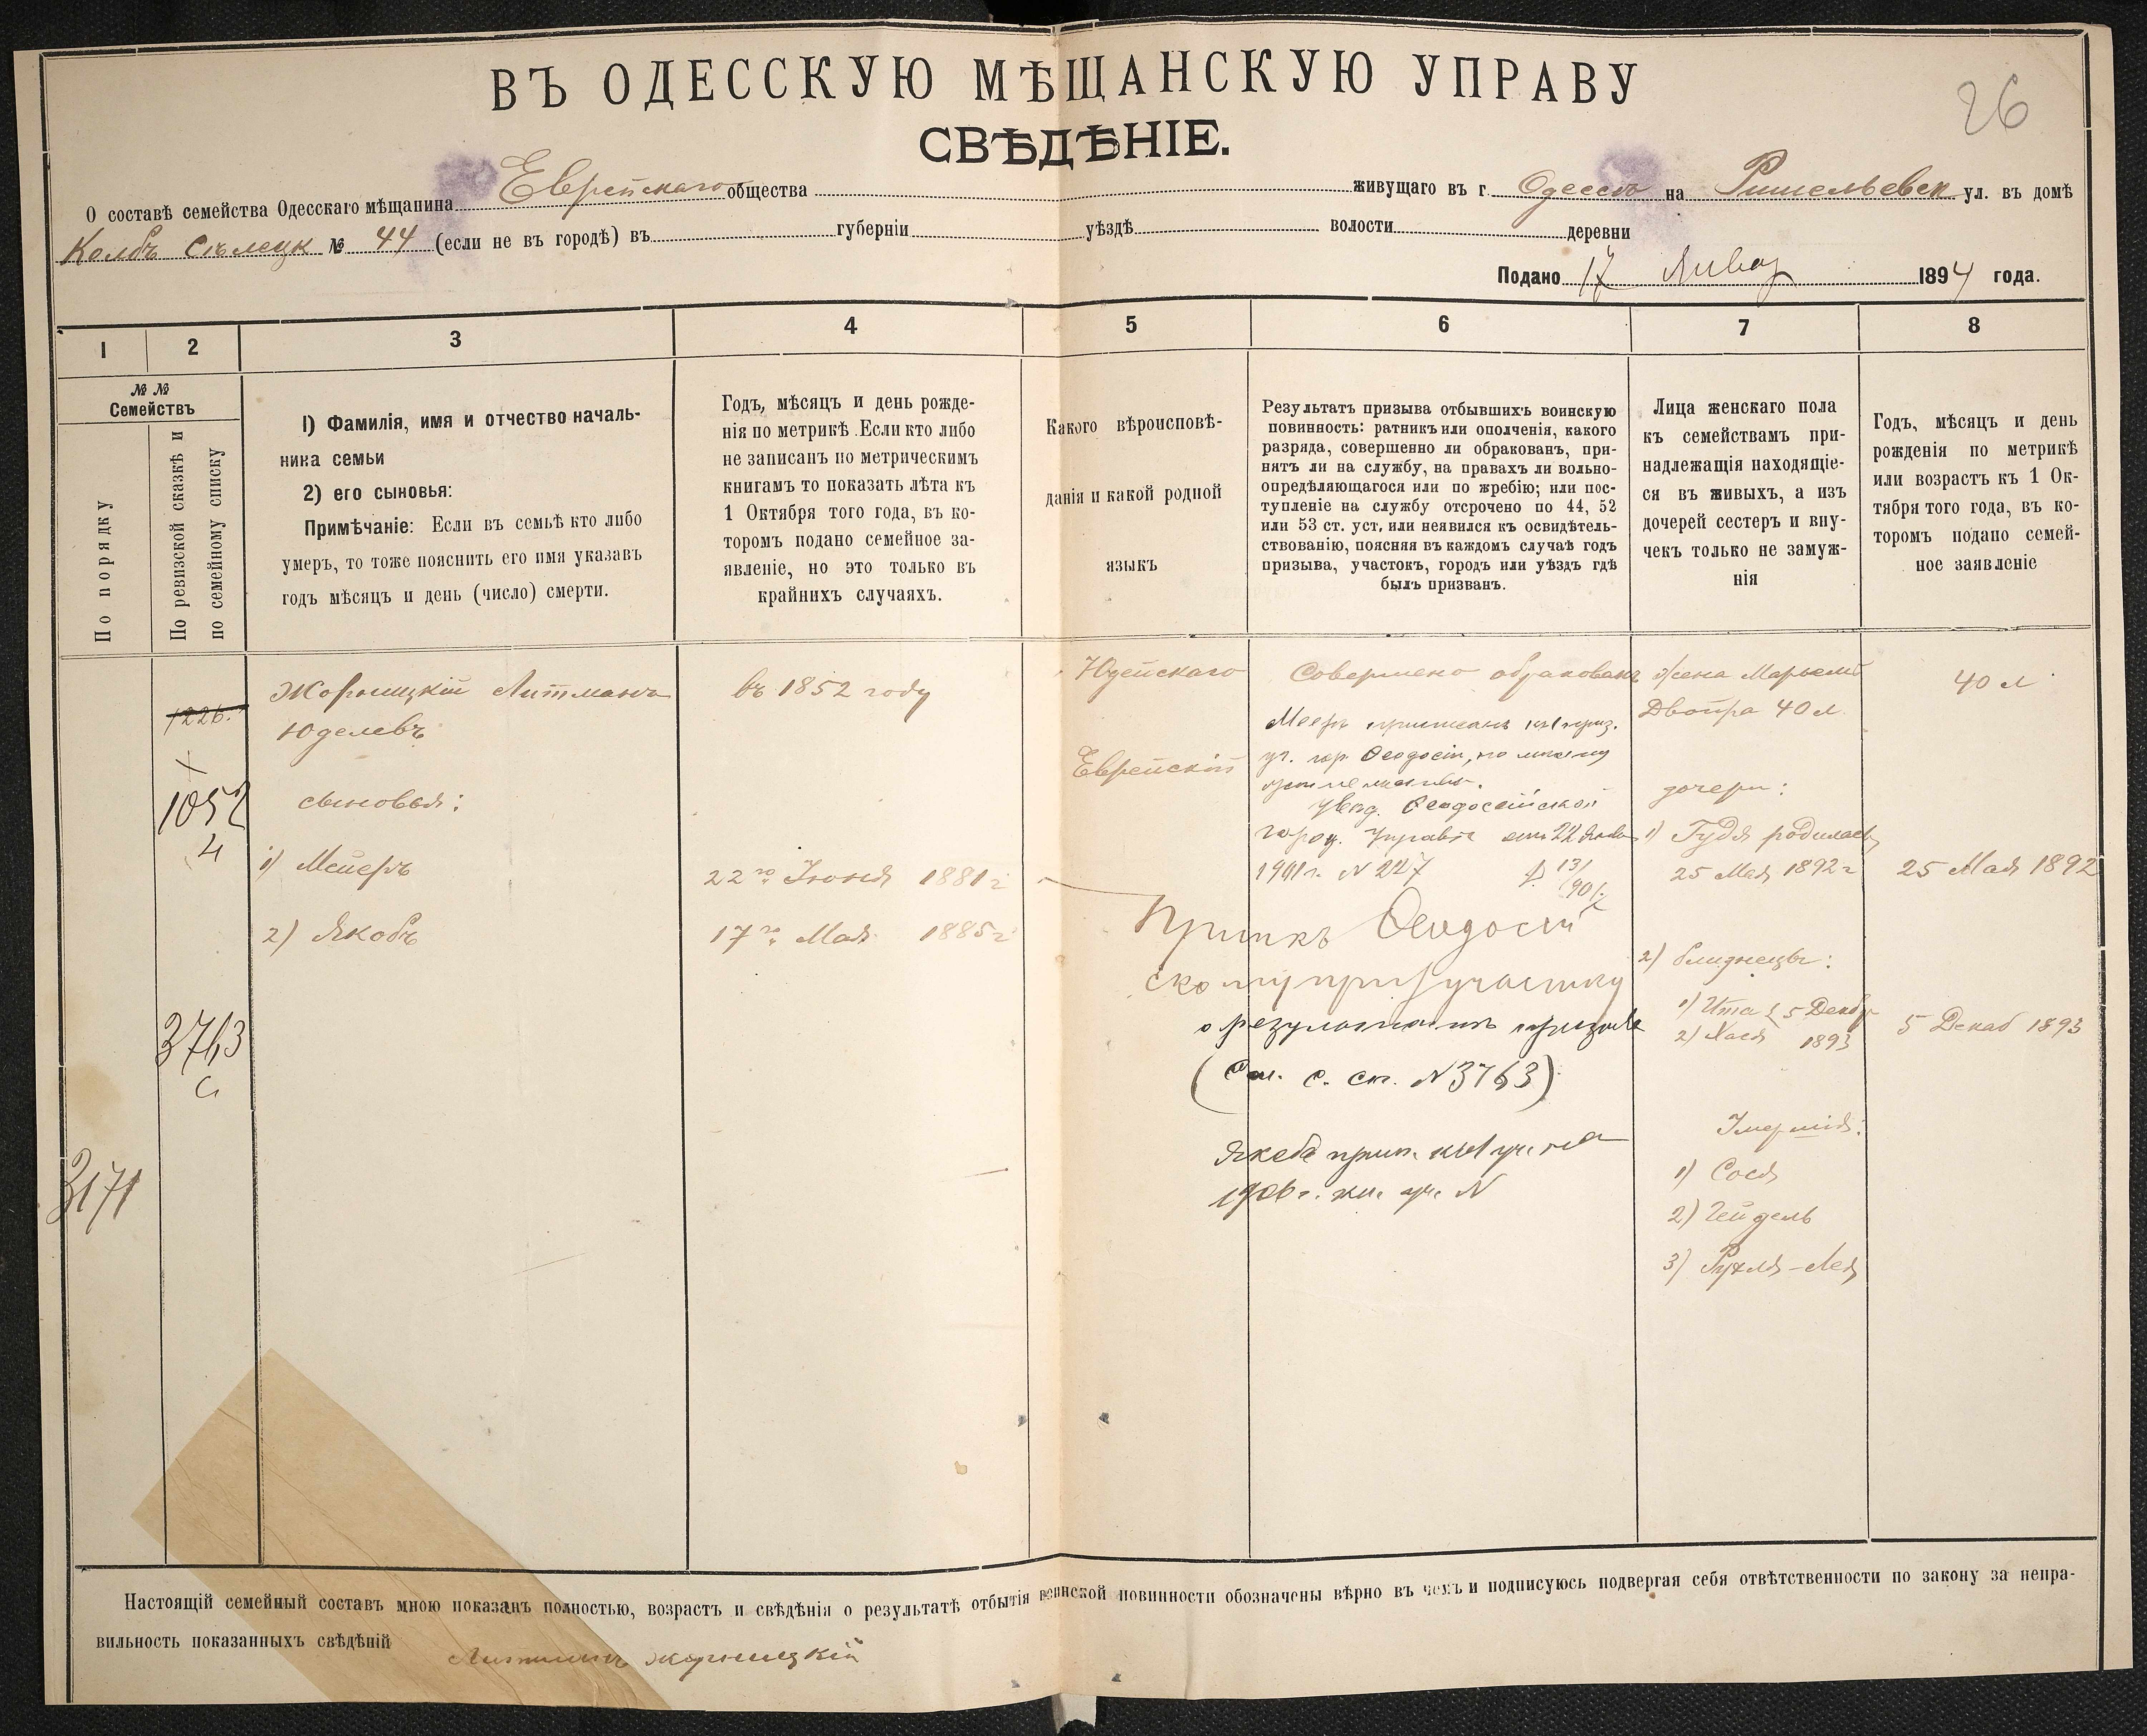 26
ВЪ ОДЕССКУЮ МѢЩАНСКУЮ УПРАВУ
СВѢДѢНІЕ.
О составѣ семейства Одесскаго мѣщанина Еврейскаго общества живущаго въ г. Одессѣ на Ришельевск ул. въ домѣ
№ 44 (если не въ городѣ) въ губерніи уѣздѣ волости деревни
Подано 17 Январ 1894 года.
1 2 3 4 5 6 7 8
№ №
Семействъ
По порядку
По ревизской сказкѣ и
по семейному списку
1) Фамилія, имя и отчество началь-
ника семьи
2) его сыновья:
Примѣчаніе: Если въ семьѣ кто либо
умеръ, то тоже пояснить его имя указавъ
годъ мѣсяцъ и день (число) смерти.
Годъ, мѣсяцъ и день рожде-
нія по метрикѣ. Если кто либо
не записанъ по метрическимъ
книгамъ то показать лѣта къ
1 Октября того года, въ ко-
торомъ подано семейное за-
явленіе, но это только въ
крайнихъ случаяхъ.
Какого вѣроисповѣ-
данія и какой родной
языкъ
Результатъ призыва отбывшихъ воинскую
повинность: ратникъ или ополченія, какого
разряда, совершенно ли обракованъ, при-
нятъ ли на службу, на правахъ ли вольно-
опредѣляющагося или по жребію; или пос-
тупленіе на службу отсрочено по 44, 52
или 53 ст. уст. или неявился къ освидѣтель-
ствованію, поясняя въ каждомъ случаѣ годъ
призыва, участокъ, городъ или уѣздъ гдѣ
былъ призванъ.
Лица женскаго пола
къ семействамъ при-
надлежащія находящіе-
ся въ живыхъ, а изъ
дочерей сестеръ и вну-
чекъ только не замуж-
нія
Годъ, мѣсяцъ и день
рожденія по метрикѣ
или возрастъ къ 1 Ок-
тября того года, въ ко-
торомъ подано семей-
ное заявленіе
1226.
1052
3763
с
3171
Жорницкій Литманъ
Юделевъ
сыновья:
1) Мейеръ
2) Якобъ
въ 1852 году
22го Іюня 1881 г
17го Мая 1885 г
Юдейскаго
Еврейскій
Совершено обракованъ
Мееръ приписанъ къ 1 приз.
уч. гор. Ѳеодосіи, по
увѣд. Ѳеодосійской
город. Управы отъ 22 Янва
1901 г. № 227
Ѳеодосій
скому приз участку
о результатъ призыва
(См. с. сп. № 3763)
Якобъ прип. къ 1 уч. на
1906 г. уч. №
Жена Марьемъ
Двойра 40 л.
дочери:
1) Гудя родилась
25 Мая 1892 г
2) близнецы:
1) Ита 5 Декабр
2) Хася 1893
Умершія:
1) Сося
2) Гейдель
3) Рухля-Лея
40 л
25 Мая 1892
5 Декаб 1893
Настоящій семейный составъ мною показанъ полностью, возрастъ и свѣдѣнія о результатѣ отбытія воинской повинности обозначены вѣрно въ чемъ и подписуюсь подвергая себя отвѣтственности по закону за непра-
вильность показанныхъ свѣдѣній
Литманъ Жорницкій